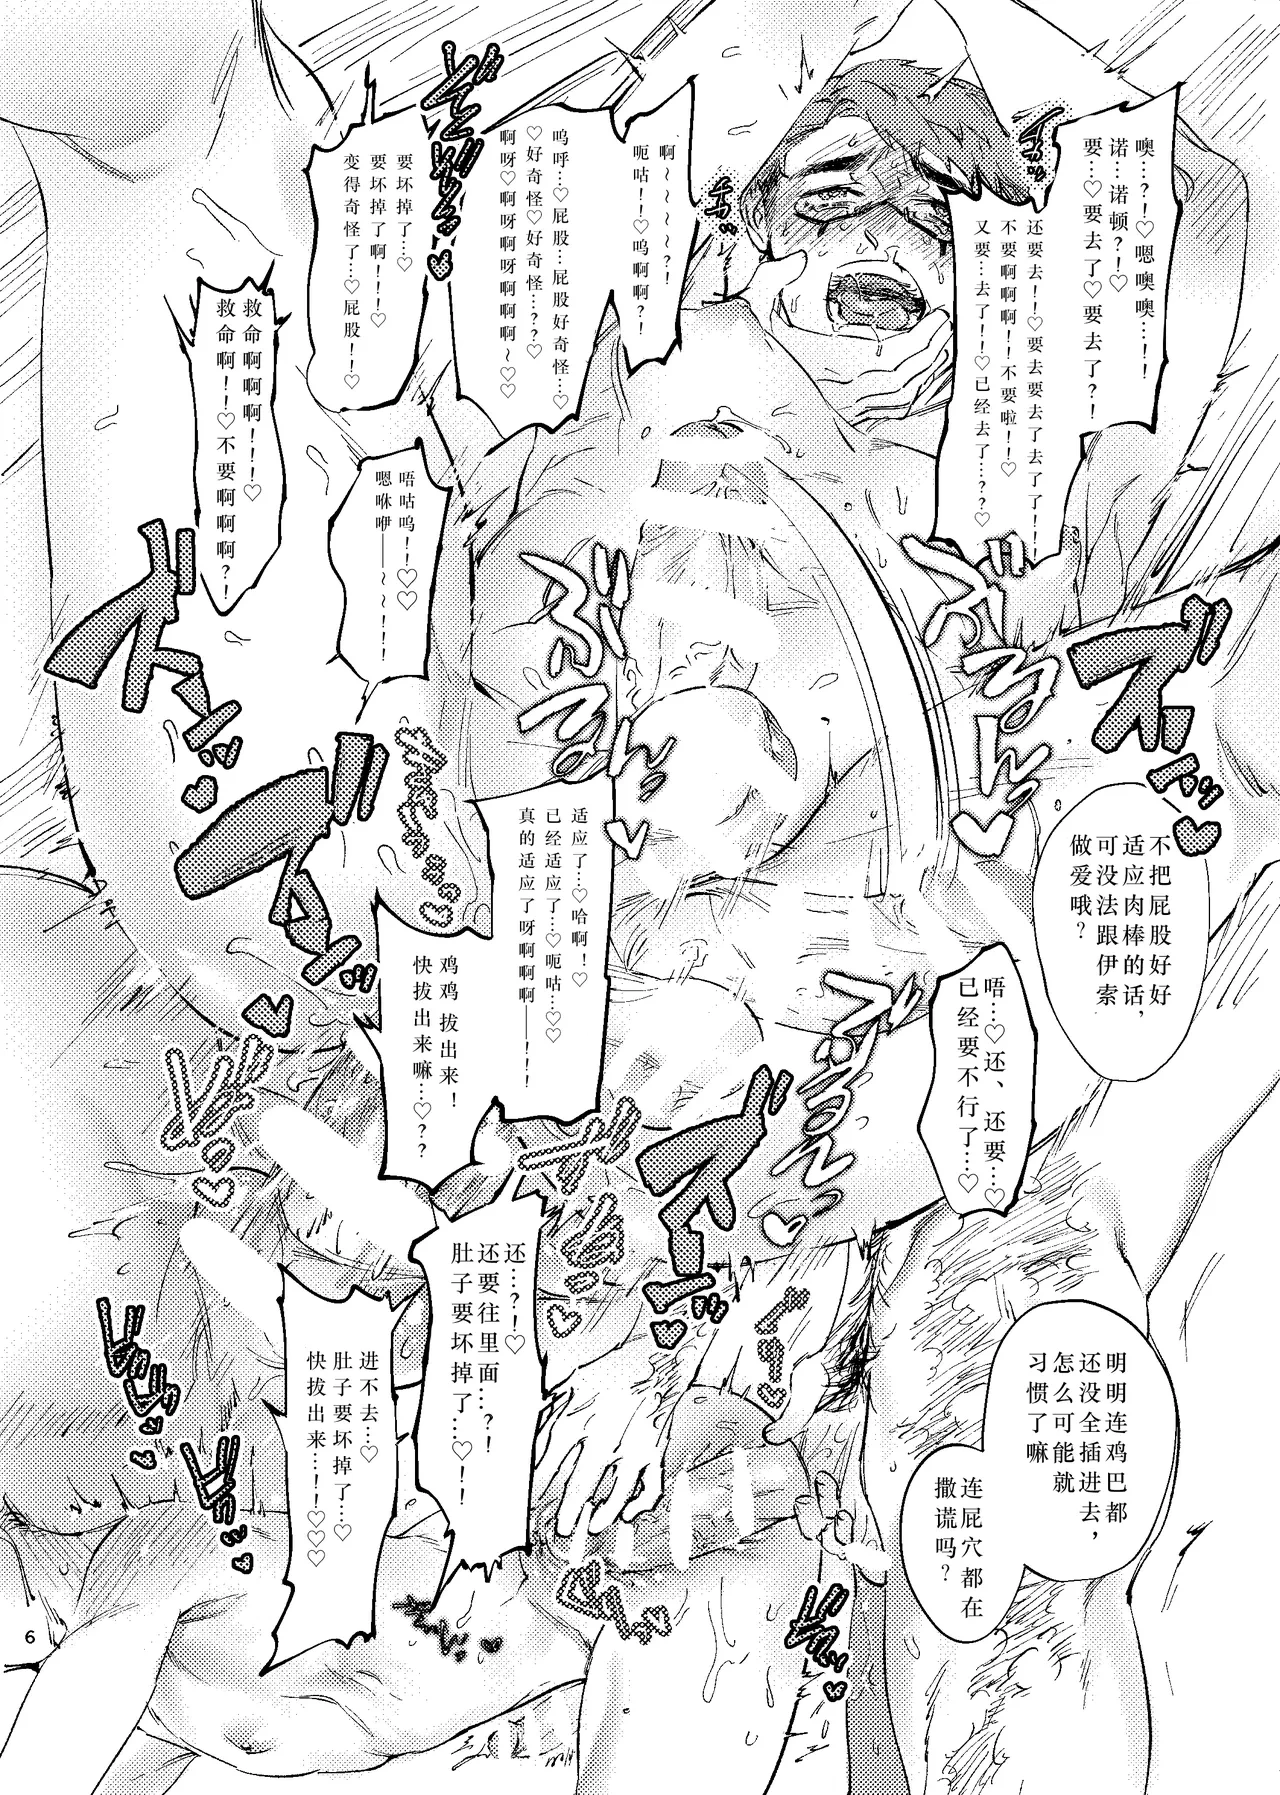 噢…?!♡嗯噢噢…!!
诺…诺顿?!♡
要…♡要去了♡要去了?!
还要去!!♡要去要去了去了了!!
不要啊啊啊!!不要啦!!♡
又要…去了!!♡已经去了…??♡
啊~~~~~?!
呃咕!!♡呜啊啊?!
呜呼…♡屁股…屁股好奇怪…♡
♡好奇怪♡好奇怪…??♡
啊呀♡啊呀啊呀啊啊啊~♡♡
要坏掉了…♡
要坏掉了啊!!!♡
变得奇怪了…♡屁股!!♡
救命啊啊啊!!!♡
救命啊!!♡不要啊啊啊?!
唔咕呜!!♡♡
嗯咻咿——~!!!
不把屁股好好
适应肉棒的话,
可没法跟伊索
做爱哦?
适应了…♡哈啊!♡
已经适应了…♡呃咕…♡♡
真的适应了呀啊啊啊——!!!
鸡鸡拔出来!
快拔出来嘛…♡??
唔…♡还、还要…♡
已经要不行了…♡
还…?!♡
还要往里面…?!
肚子要坏掉了…♡!!
进不去…♡
肚子要坏掉了…♡
快拔出来…!!♡♡♡
明明连鸡巴都
还没全插进去,
怎么可能就
习惯了嘛
连屁穴都在
撒谎吗?
6